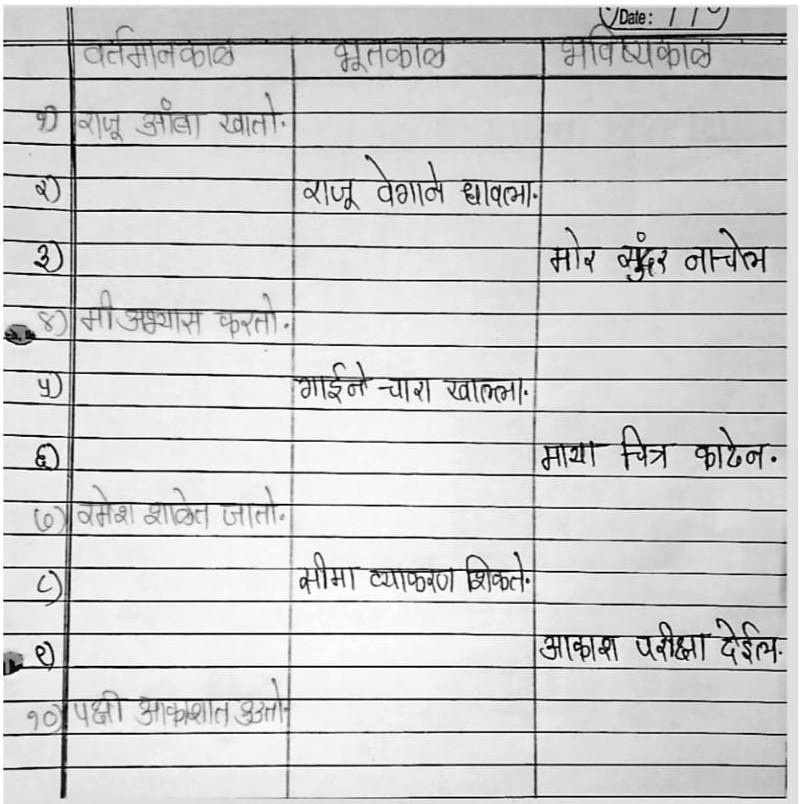 Date:
वर्तमानकाळ भूतकाळ भविष्यकाळ
१) राजू आंबा खातो.
२) राजू वेगाने धावला.
३) मोर सुंदर नाचेल
४) मी अभ्यास करतो.
५) गाईने चारा खाल्ला.
६) माया चित्र काढेन.
७) रमेश शाळेत जातो.
८) सीमा व्याकरण शिकते.
९) आकाश परीक्षा देईल.
१०) पक्षी आकाशात उडतो.